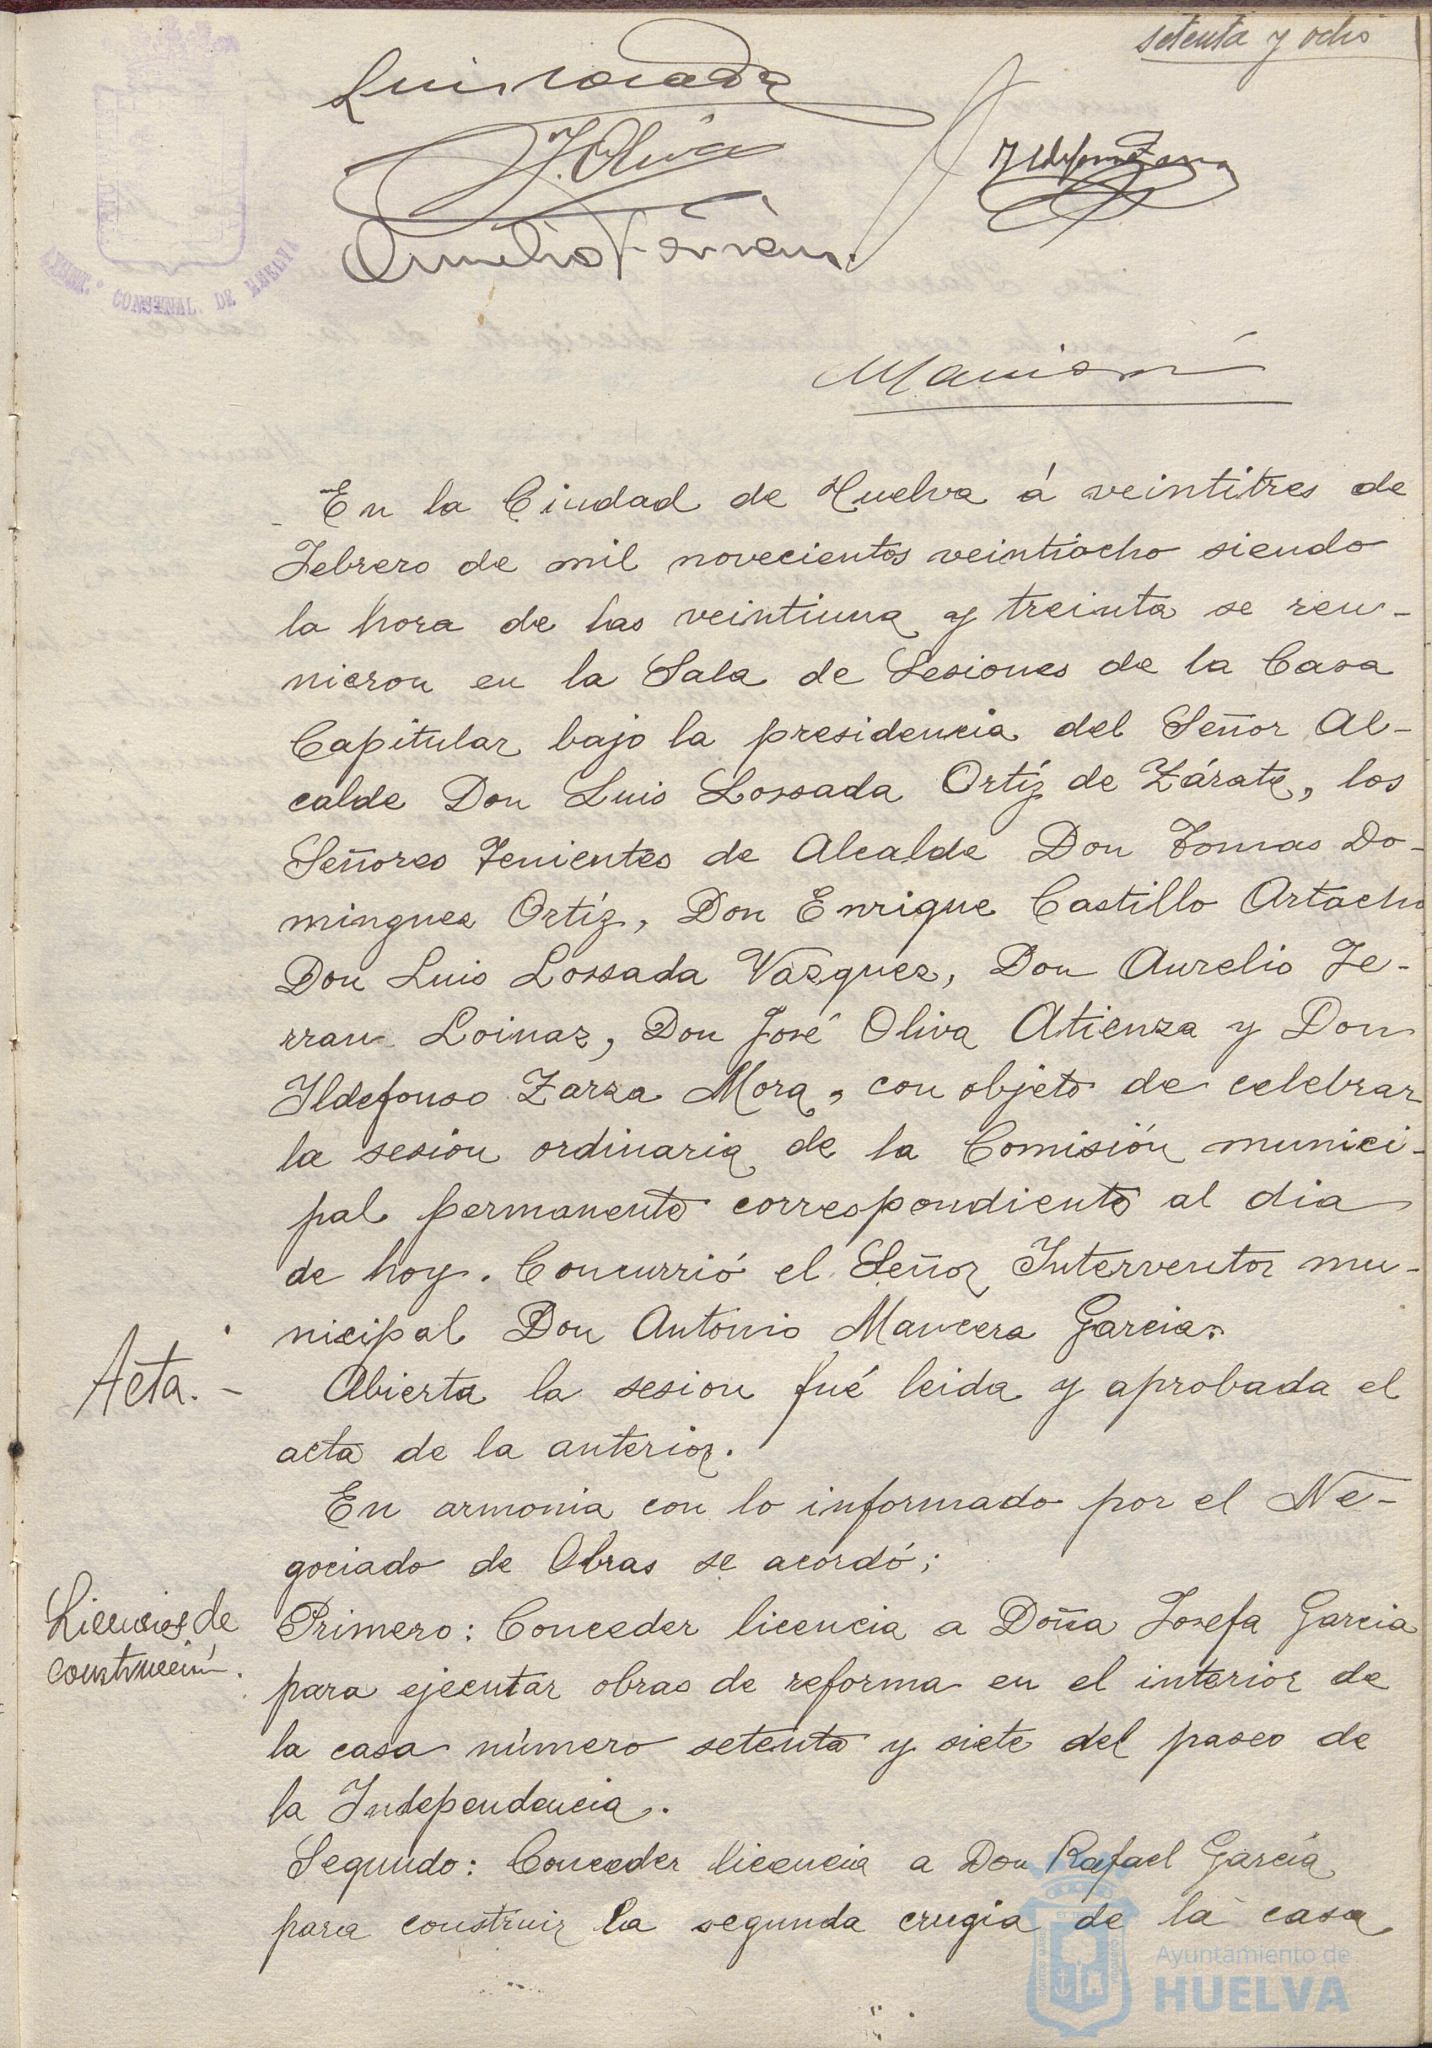 setenta y ocho
Luis Losada
J. Oliva
Ildefonso Zarza
Aurelio Ferran
AYUNT. CONSTNAL. DE HUELVA
En la Ciudad de Huelva á veintitres de
Febrero de mil novecientos veintiocho siendo
la hora de las veintiuna y treinta se reu-
nieron en la Sala de Sesiones de la Casa
Capitular bajo la presidencia del Señor Al-
calde Don Luis Lossada Ortíz de Zárate, los
Señores Tenientes de Alcalde Don Tomas Do-
minguez Ortíz, Don Enrique Castillo Artacho
Don Luis Lossada Vazquez, Don Aurelio Fe-
rran Loinaz, Don José Oliva Atienza y Don
Ildefonso Zarza Mora, con objeto de celebrar
la sesion ordinaria de la Comisión munici-
pal permanente correspondiente al dia
de hoy. Concurrió el Señor Interventor mu-
nicipal Don Antonio Mancera Garcia.
Acta.-
Abierta la sesion fué leida y aprobada el
acta de la anterior.
En armonia con lo informado por el Ne-
gociado de Obras se acordó;
Licencias de
construcción.
Primero: Conceder licencia a Doña Josefa Garcia
para ejecutar obras de reforma en el interior de
la casa número setenta y siete del paseo de
la Independencia.
Segundo: Conceder licencia a Don Rafael García
para construir la segunda crugia de la casa
Ayuntamiento de
HUELVA